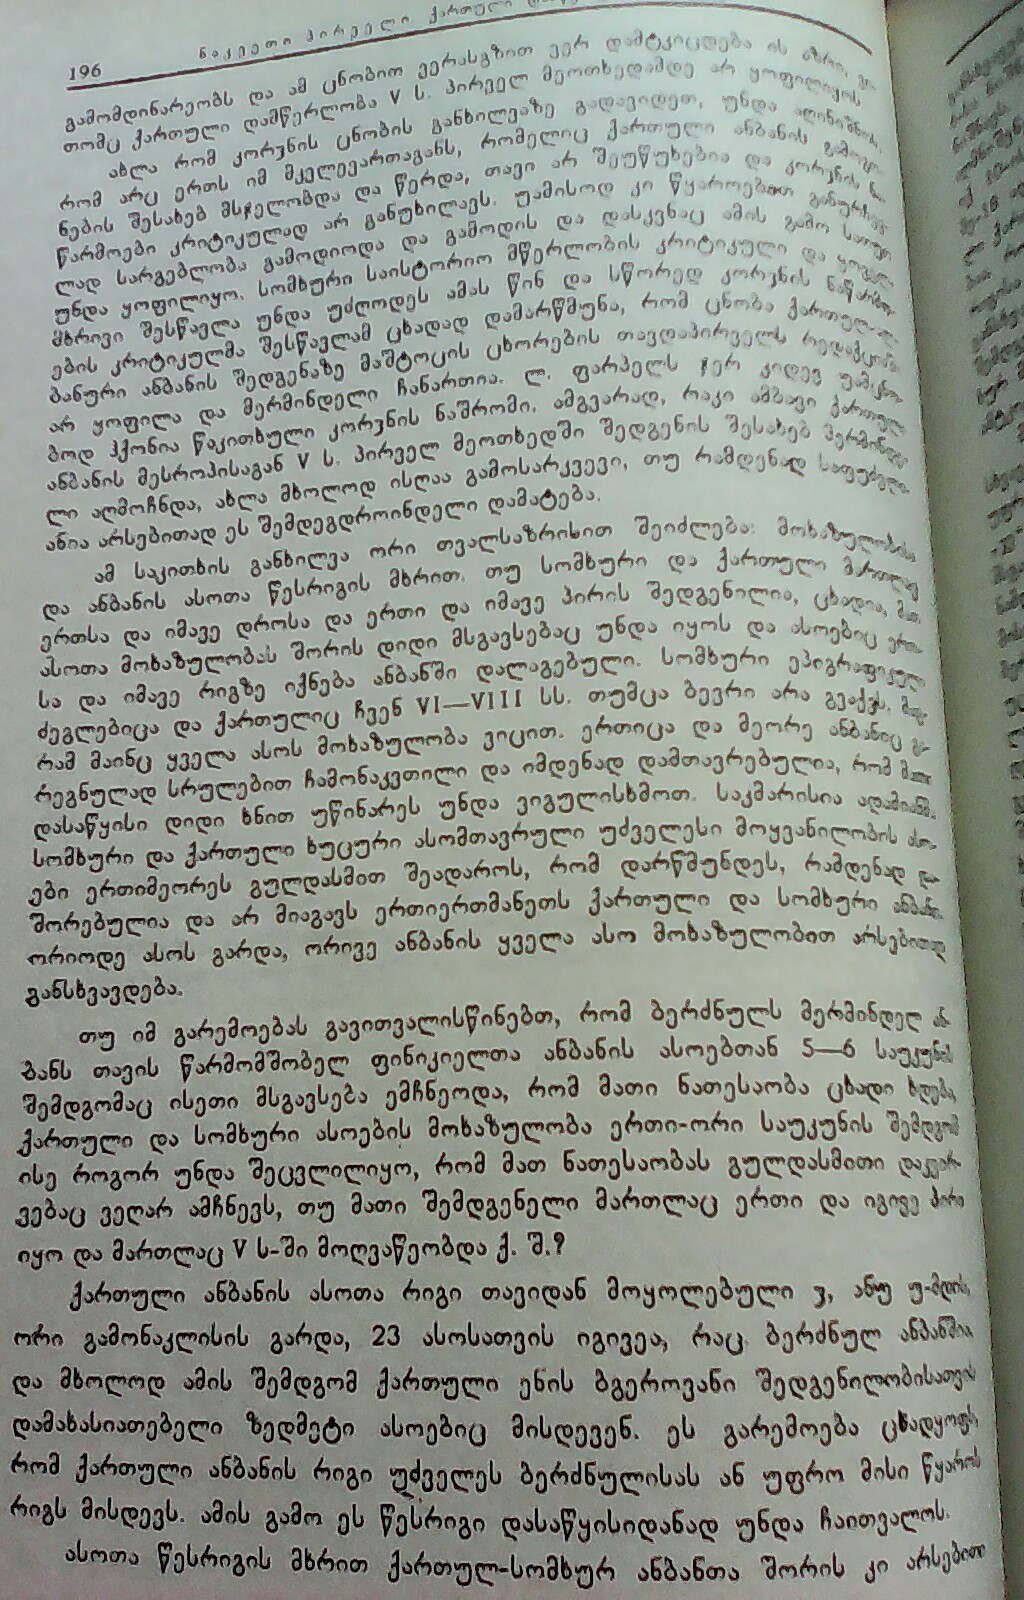 196
ნაკვეთი პირველი ქართული
გამომდინარეობს და ამ ცნობით ვერასგზით ვერ დამტკიცდება ის აზრი,
თომც ქართული დამწერლობა V ს. პირველ მეოთხედამდე არ ყოფილიყოს
ახლა რომ კორჳნის ცნობის განხილვაზე გადავიდეთ, უნდა აღინიშნოს,
რომ არც ერთს იმ მკვლევართაგანს, რომელიც ქართული ანბანის
ნების შესახებ მსჯელობდა და წერდა, თავი არ შეუწუხებია და კორჳნის
წარმოები კრიტიკულად არ განუხილავს. უამისოდ კი წყაროებით
ლად სარგებლობა გამოდიოდა და გამოდის და დასკვნაც ამის გამო
უნდა ყოფილიყო. სომხური საისტორიო მწერლობის კრიტიკული და
მხრივი შესწავლა უნდა უძღოდეს ამას წინ და სწორედ კორჳნის
ების კრიტიკულმა შესწავლამ ცხადად დამარწმუნა, რომ ცნობა
ბანური ანბანის შედგენაზე მაშტოცის ცხორების თავდაპირველს რედაქციაში
არ ყოფილა და მერმინდელი ჩანართია. ლ. ფარპელს ჯერ კიდევ
ბოდ ჰქონია წაკითხული კორჳნის ნაშრომი. ამგვარად, რაკი ამბავი ქართული
ანბანის მესროპისაგან V ს. პირველ მეოთხედში შედგენის შესახებ
ლი აღმოჩნდა, ახლა მხოლოდ ისღაა გამოსარკვევი, თუ რამდენად
ანია არსებითად ეს შემდეგდროინდელი დამატება.
ამ საკითხის განხილვა ორი თვალსაზრისით შეიძლება: მოხაზულობისა
და ანბანის ასოთა წესრიგის მხრით. თუ სომხური და ქართული მართლაც
ერთსა და იმავე დროსა და ერთი და იმავე პირის შედგენილია, ცხადია,
ასოთა მოხაზულობას შორის დიდი მსგავსებაც უნდა იყოს და ასოებიც
სა და იმავე რიგზე იქნება ანბანში დალაგებული. სომხური ეპიგრაფიკული
ძეგლებიცა და ქართულიც ჩვენ VI—VIII სს. თუმცა ბევრი არა გვაქვს,
რამ მაინც ყველა ასოს მოხაზულობა ვიცით. ერთიცა და მეორე ანბანიც
რეგნულად სრულებით ჩამონაკვთილი და იმდენად დამთავრებულია, რომ
დასაწყისი დიდი ხნით უწინარეს უნდა ვიგულისხმოთ. საკმარისია ადამიანმა
სომხური და ქართული ხუცური ასომთავრული უძველესი მოყვანილობის
ები ერთიმეორეს გულდასმით შეადაროს, რომ დარწმუნდეს, რამდენად
შორებულია და არ მიაგავს ერთიერთმანეთს ქართული და სომხური
ორიოდე ასოს გარდა, ორივე ანბანის ყველა ასო მოხაზულობით არსებითად
განსხვავდება.
თუ იმ გარემოებას გავითვალისწინებთ, რომ ბერძნულს მერმინდელ ან-
ბანს თავის წარმომშობელ ფინიკიელთა ანბანის ასოებთან 5—6 საუკუნის
შემდგომაც ისეთი მსგავსება ემჩნეოდა, რომ მათი ნათესაობა ცხადი ხდება,
ქართული და სომხური ასოების მოხაზულობა ერთი-ორი საუკუნის შემდგომ
ისე როგორ უნდა შეცვლილიყო, რომ მათ ნათესაობას გულდასმითი დაკვირ-
ვებაც ვეღარ ამჩნევს, თუ მათი შემდგენელი მართლაც ერთი და იგივე პირი
იყო და მართლაც V ს-ში მოღვაწეობდა ქ. შ.?
ქართული ანბანის ასოთა რიგი თავიდან მოყოლებული ჳ, ანუ უ-მდის,
ორი გამონაკლისის გარდა, 23 ასოსათვის იგივეა, რაც ბერძნულ ანბანშია
და მხოლოდ ამის შემდგომ ქართული ენის ბგეროვანი შედგენილობისათვის
დამახასიათებელი ზედმეტი ასოებიც მისდევენ. ეს გარემოება ცხადყოფს,
რომ ქართული ანბანის რიგი უძველეს ბერძნულისას ან უფრო მისი წყაროს
რიგს მისდევს. ამის გამო ეს წესრიგი დასაწყისიდანად უნდა ჩაითვალოს.
ასოთა წესრიგის მხრით ქართულ-სომხურ ანბანთა შორის კი არსებითი